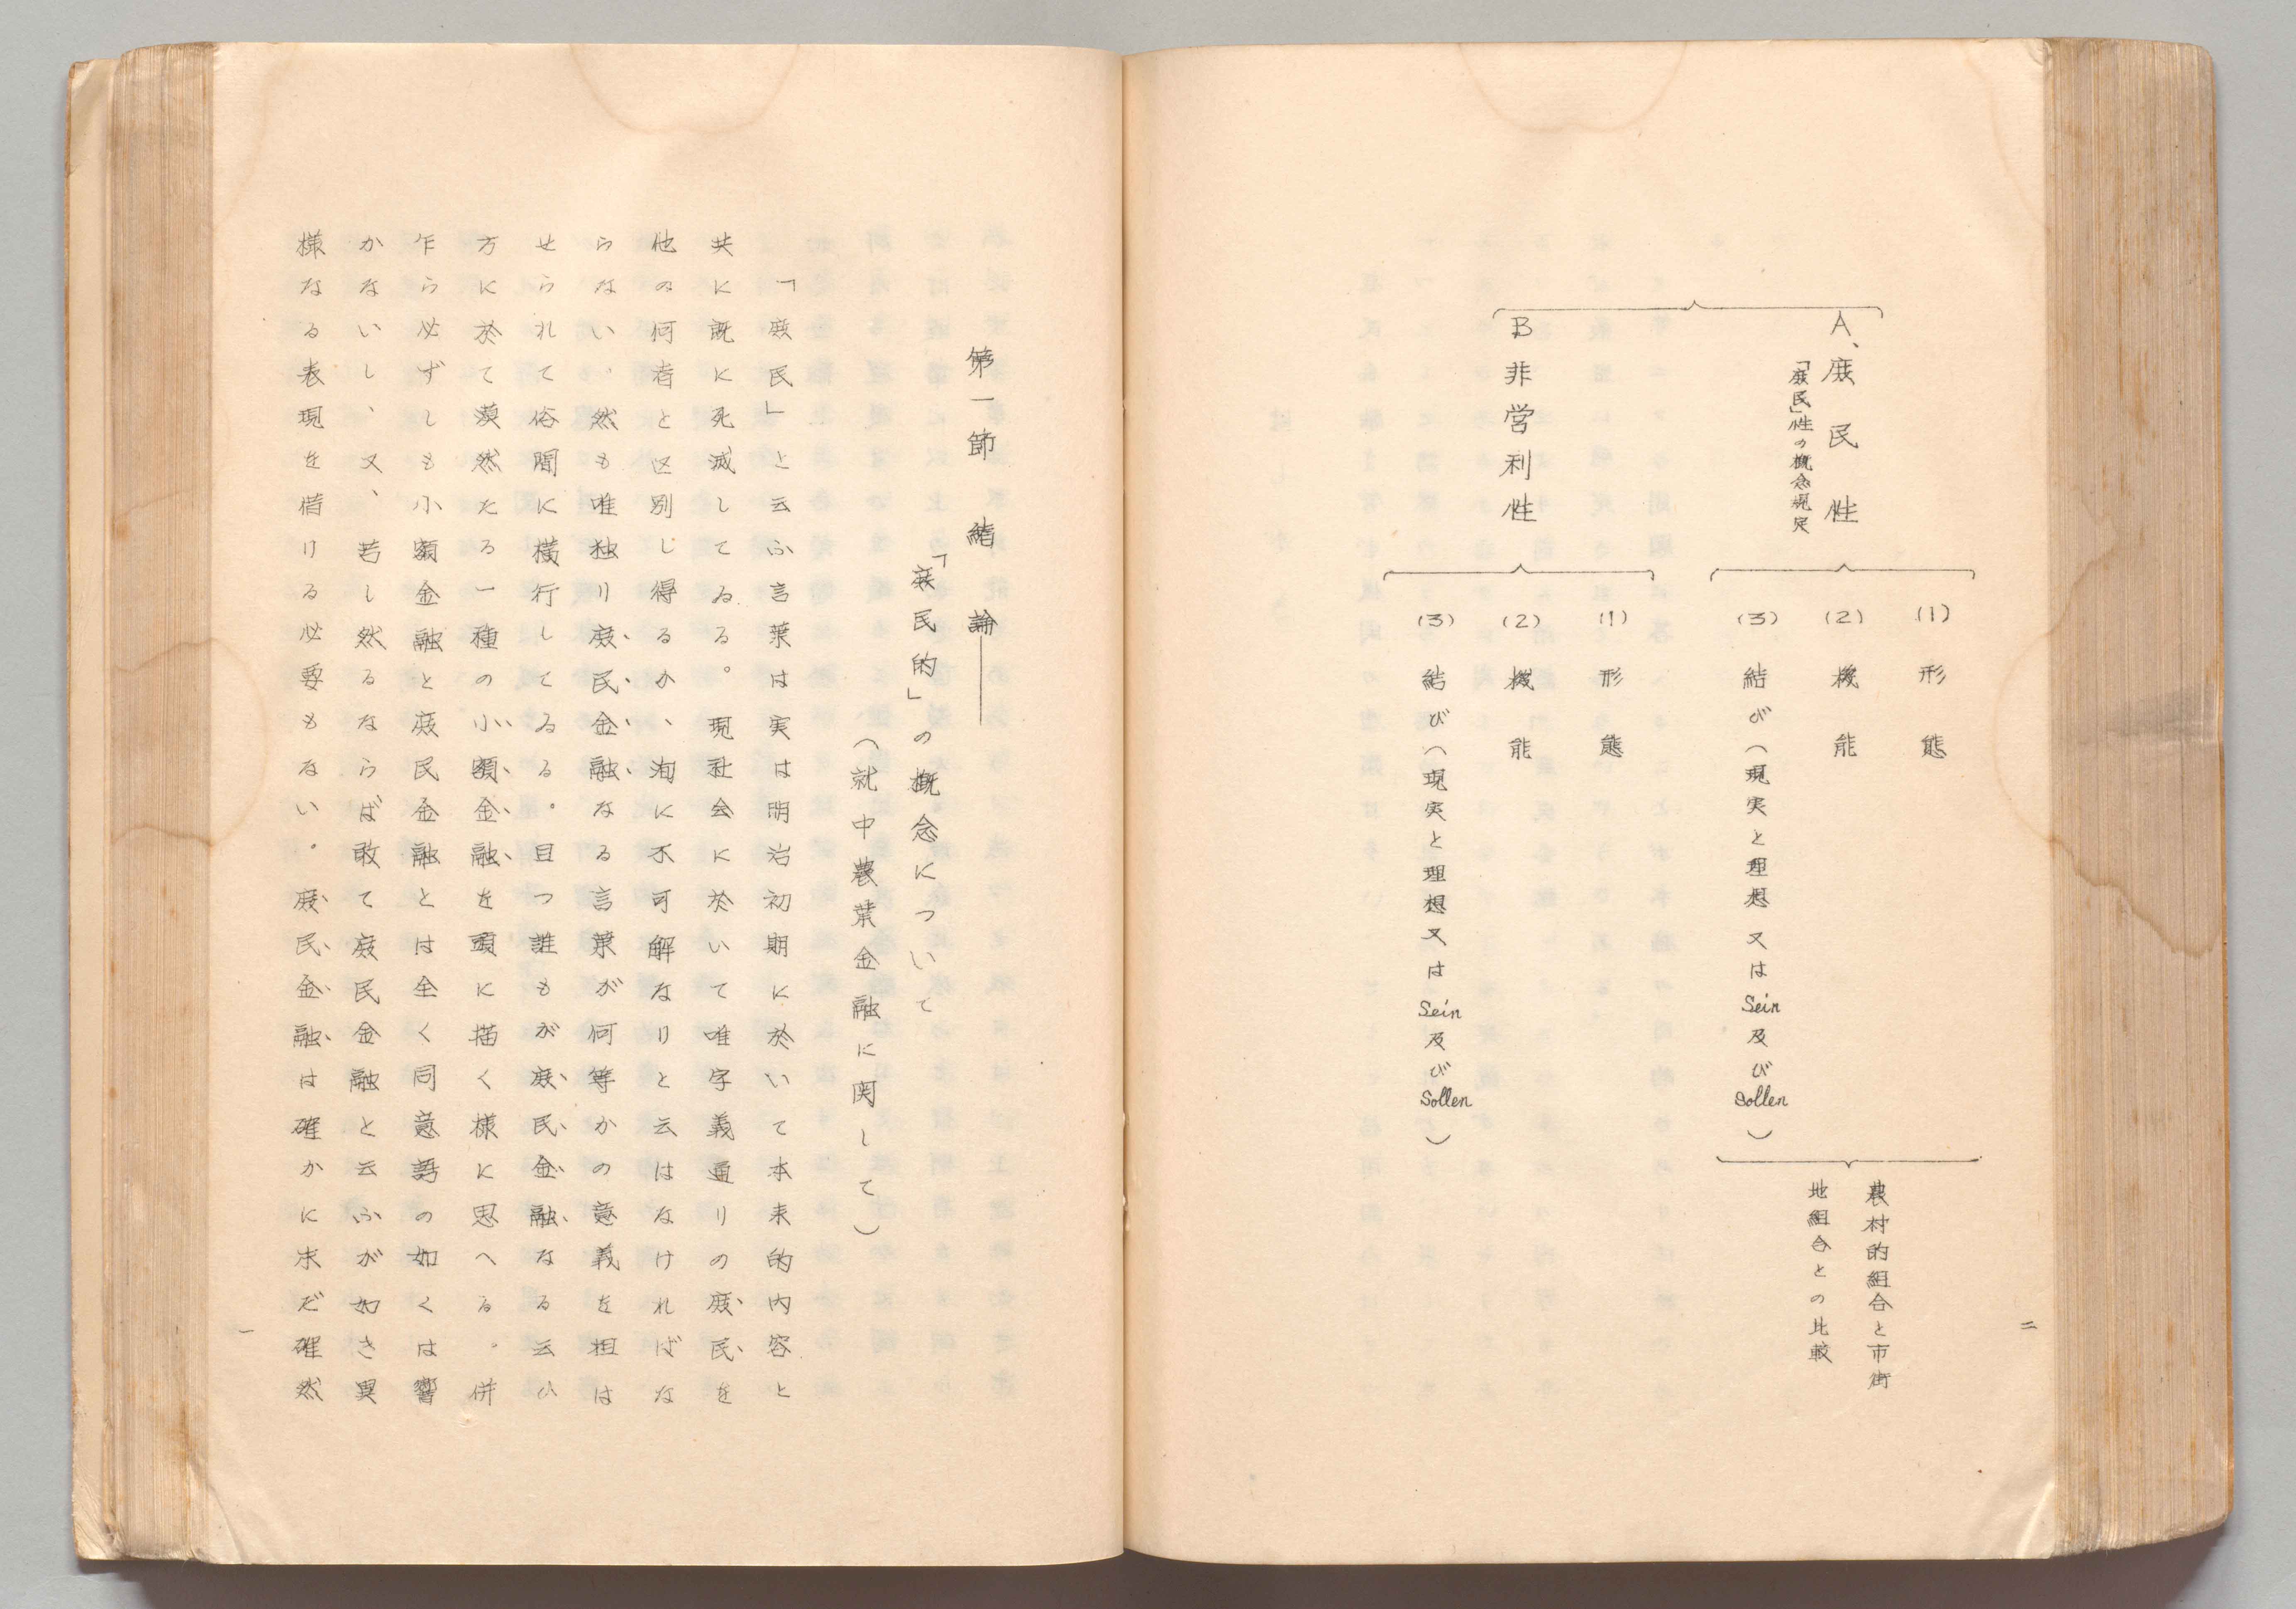 二
A、庶民性
「庶民」性の概念規定
(1) 形態
(2) 機能
(3) 結び(現実と理想又はSein及びSollen)
農村的組合と市街
地組合との比較
B 非営利性
(1) 形態
(2) 機能
(3) 結び(現実と理想又はSein及びSollen)
第一節 緒論――
「庶民的」の概念について
(就中農業金融に関して)
「庶民」と云ふ言葉は実は明治初期に於いて本来的内容と
共に既に死滅してゐる。現社会に於いて唯字義通りの庶民を
他の何者と区別し得るか、洵に不可解なりと云はなければな
らない、然も唯独り庶民金融なる言葉が何等かの意義を担は
せられて俗間に横行してゐる。且つ誰もが庶民金融なる云ひ
方に於て漠然たる一種の小額金融を頭に描く様に思へる。併
乍ら必ずしも小額金融と庶民金融とは全く同意語の如くは響
かないし、又、若し然るならば敢て庶民金融と云ふが如き異
様なる表現を借りる必要もない。庶民金融は確かに未だ確然
一